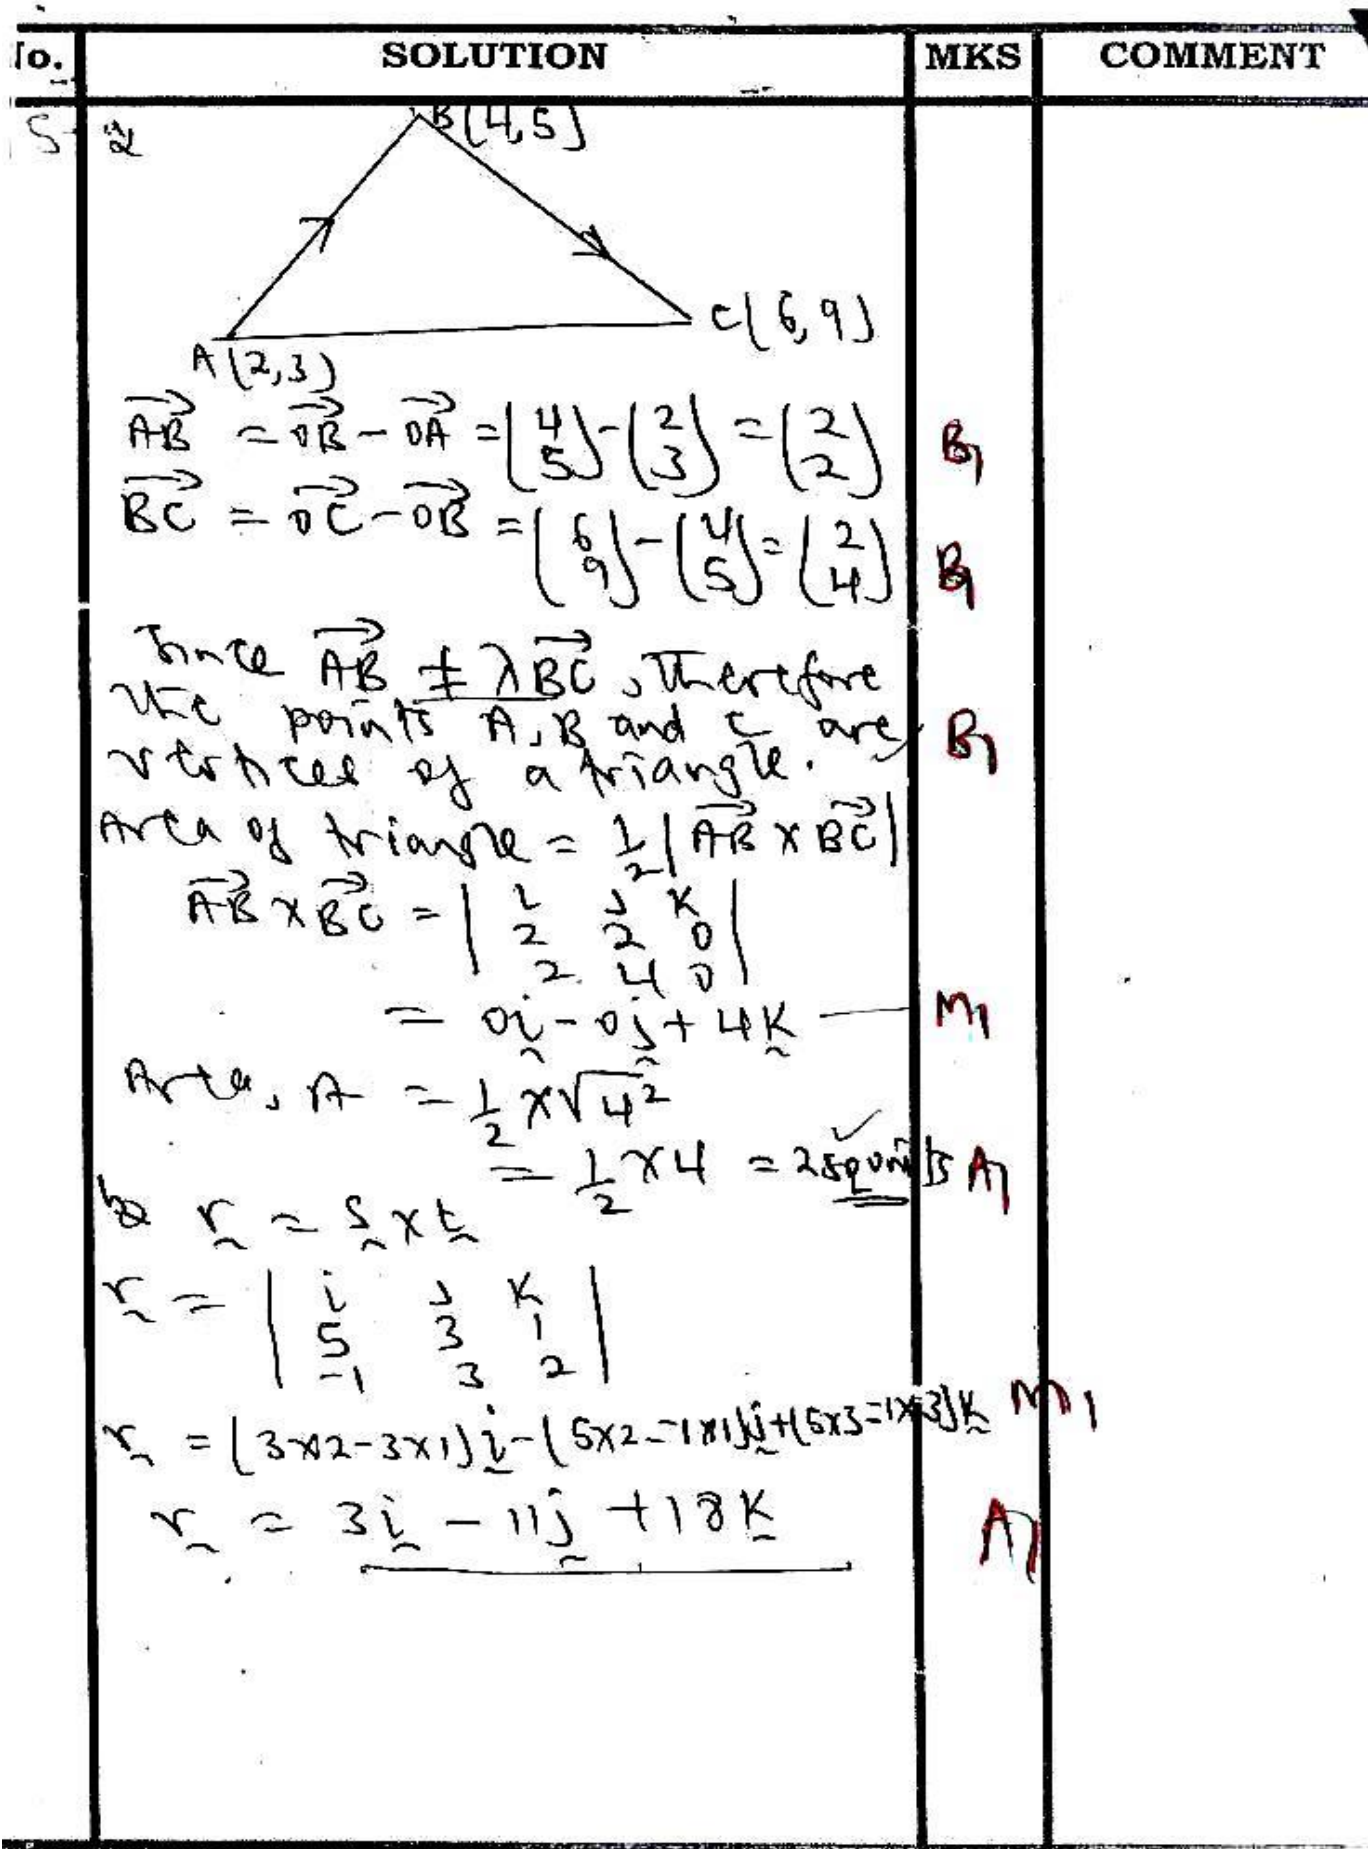 No. SOLUTION MKS COMMENT
5 a
B(4,5)
C(6,9)
A(2,3)
AB = OB - OA = (4 5) - (2 3) = (2 2) B1
BC = OC - OB = (6 9) - (4 5) = (2 4) B1
Since AB ≠ λBC, therefore
the points A, B and C are
vertices of a triangle. B1
Area of triangle = 1/2 |AB × BC|
AB × BC = | i j k
2 2 0
2 4 0 |
= 0i - 0j + 4k M1
Area, A = 1/2 × √4²
= 1/2 × 4 = 2 sq units A1
b r = s × t
r = | i j k
5 3 1
-1 3 2 |
r = (3×2 - 3×1)i - (5×2 - -1×1)j + (5×3 - -1×3)k M1
r = 3i - 11j + 18k A1